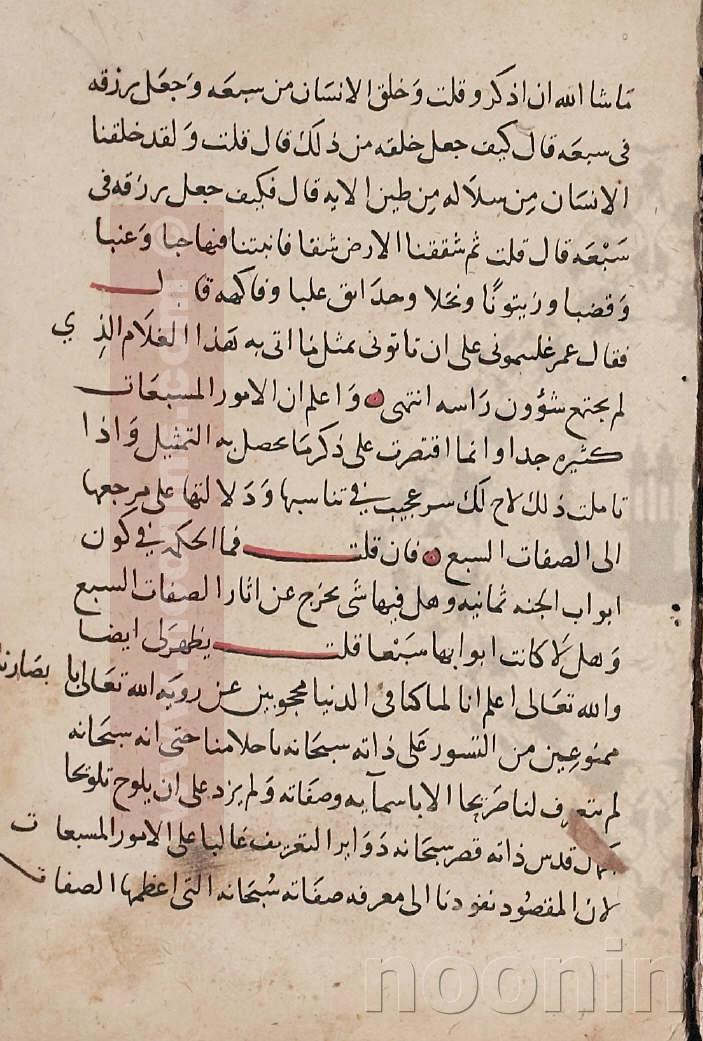 ما شا الله ان اذكر وقلت وخلق الانسان من سبعه وجعل رزقه
فى سبعه قال كيف جعل خلقه من ذلك قال قلت ولقد خلقنا
الانسان من سلاله من طين الايه قال فكيف جعل رزقه فى
سبعه قال قلت ثم شققنا الارض شقا فانبتنا فيها حبا وعنبا
وقضبا وزيتونا ونخلا وحدائق غلبا وفاكهه قال
فقال عمر غلبتمونى على ان تاتونى بمثل ما اتى به هذا الغلام الذي
لم يجتمع شؤون راسه انتهى واعلم ان الامور المسبعات
كثيره جدا وانما اقتصرت على ذكر ما يحصل به التمثيل واذا
تاملت ذلك لاح لك سر عجيب في تناسبها ودلالتها على مرجعها
الى الصفات السبع فان قلت فما الحكمه في كون
ابواب الجنه ثمانيه وهل فيها شى يخرج عن اثار الصفات السبع
وهلا كانت ابوابها سبعا قلت يظهر لى ايضا
والله تعالى اعلم انا لما كنا فى الدنيا محجوبين عن رويه الله تعالى بابصارنا
ممنوعين من التسور على ذاته سبحانه باحلامنا حتى انه سبحانه
لم يتعرف لنا صريحا الا باسمآيه وصفاته ولم يزد على ان يلوح تلويحا
بكمال قدس ذاته قصر سبحانه دواير التعريف غالبا على الامور المسبعات
لان المقصود نفوذنا الى معرفه صفاته سبحانه التى اعظمها الصفات
noonin